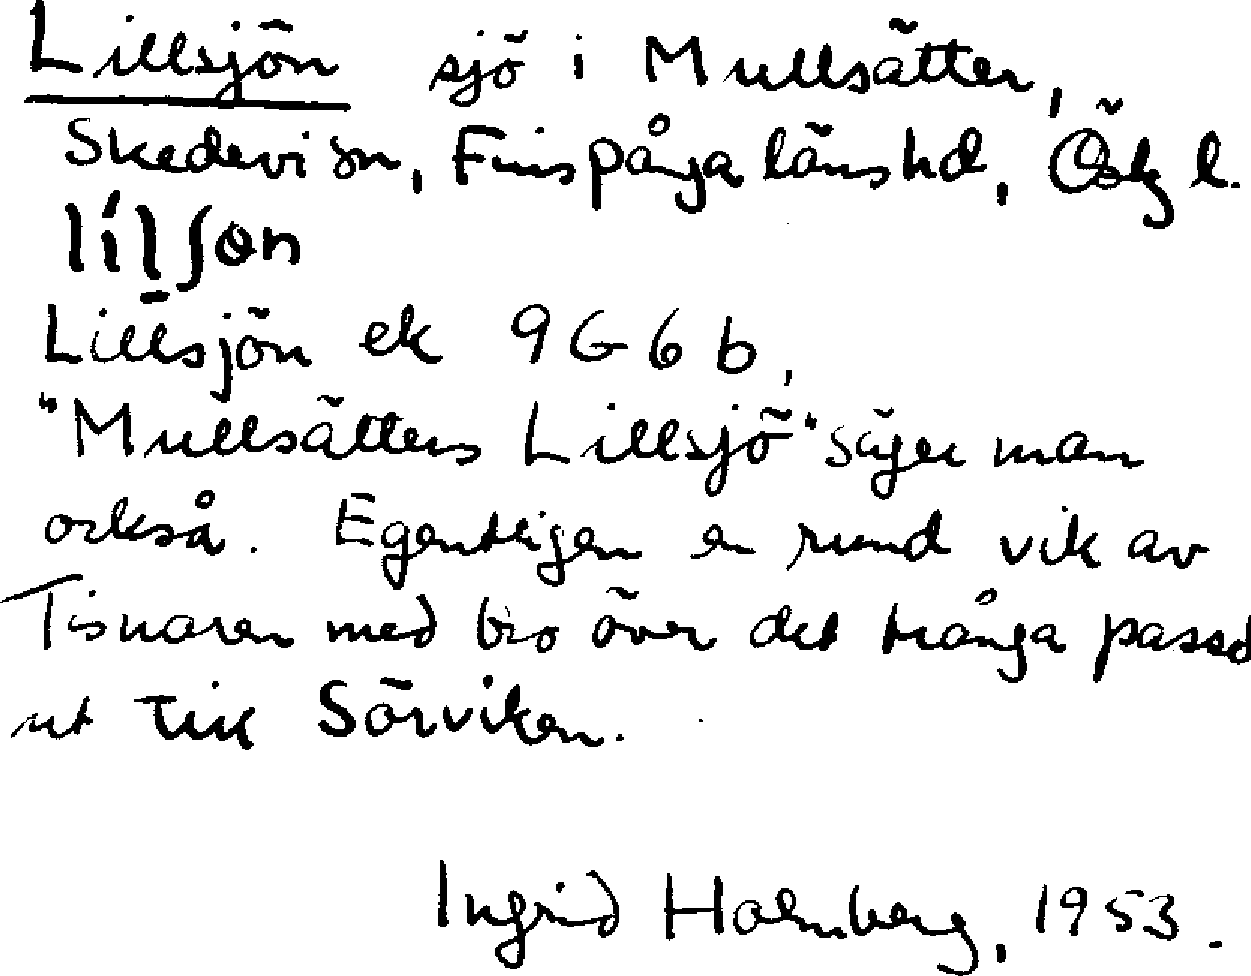 Lillsjön sjö i Mullsätter,
Skedevi sn, Finspånga länshd, Östg l.
líl̠ʃɵn
Lillsjön ek 9G6b,
"Mullsätters Lillsjö" säger man
också. Egentligen en rund vik av
Tisnaren med bro över det trånga passet
ut till Sörviken.
Ingrid Holmberg, 1953.